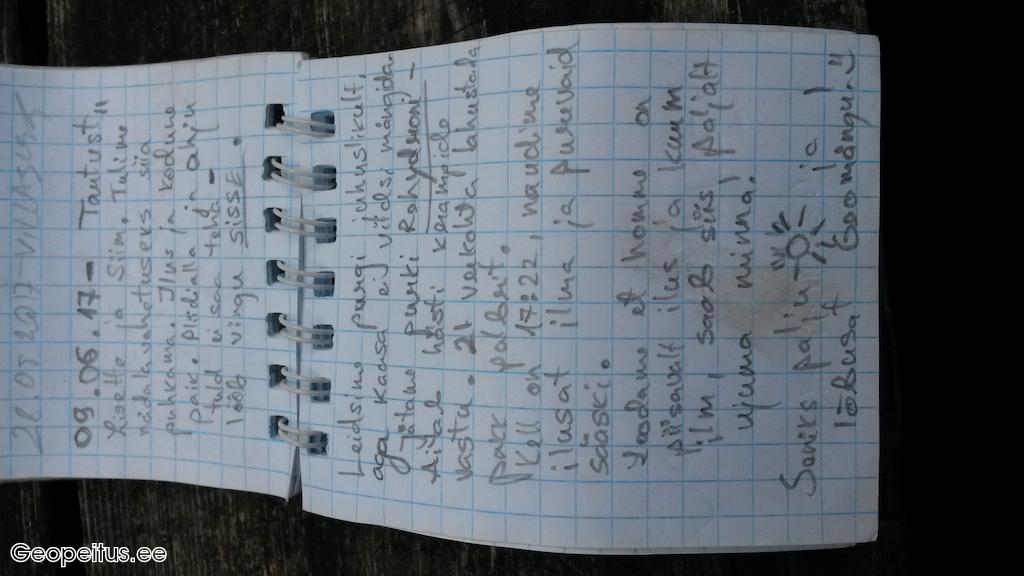 28.05 2017 - VILLASUSS
09.06.17 - Tautust"
Lisette ja Siim. Tulime
nädalavahetuseks siia
puhkama. Ilus ja kodune
paik. Pliidialla ja ahju
tuld ei saa teha -
lööb vingu SISSE.
Leidsime purgi juhuslikult,
aga kaasa ei võtsi mängida.
Jätame purki Rehydroni -
Aitab hästi kempsido
vastu. 21 veekohta lahustada
pakk pulbrit.
Kell on 17:22, naudime
ilusat ilma ja purevaid
sääski.
Loodame et homme on
piisavalt ilus ja kuum
ilm, saab siis paljalt
ujuma minna!
Seniks palju
ja
lõbusat Geomängu!
Geopeitus.ee